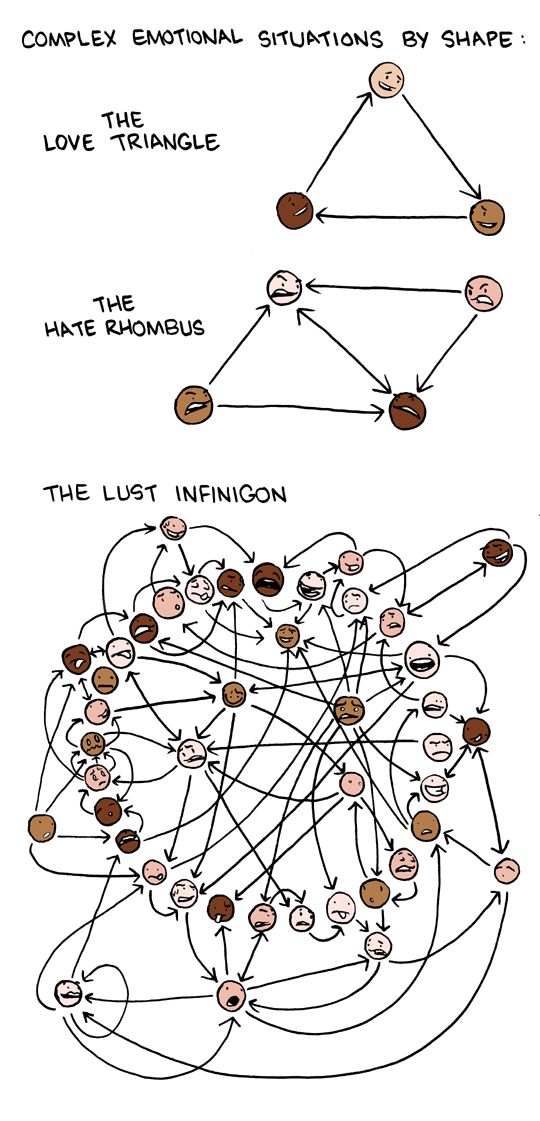 COMPLEX EMOTIONAL SITUATIONS BY SHAPE:
THE
LOVE TRIANGLE
THE
HATE RHOMBUS
THE LUST INFINIGON